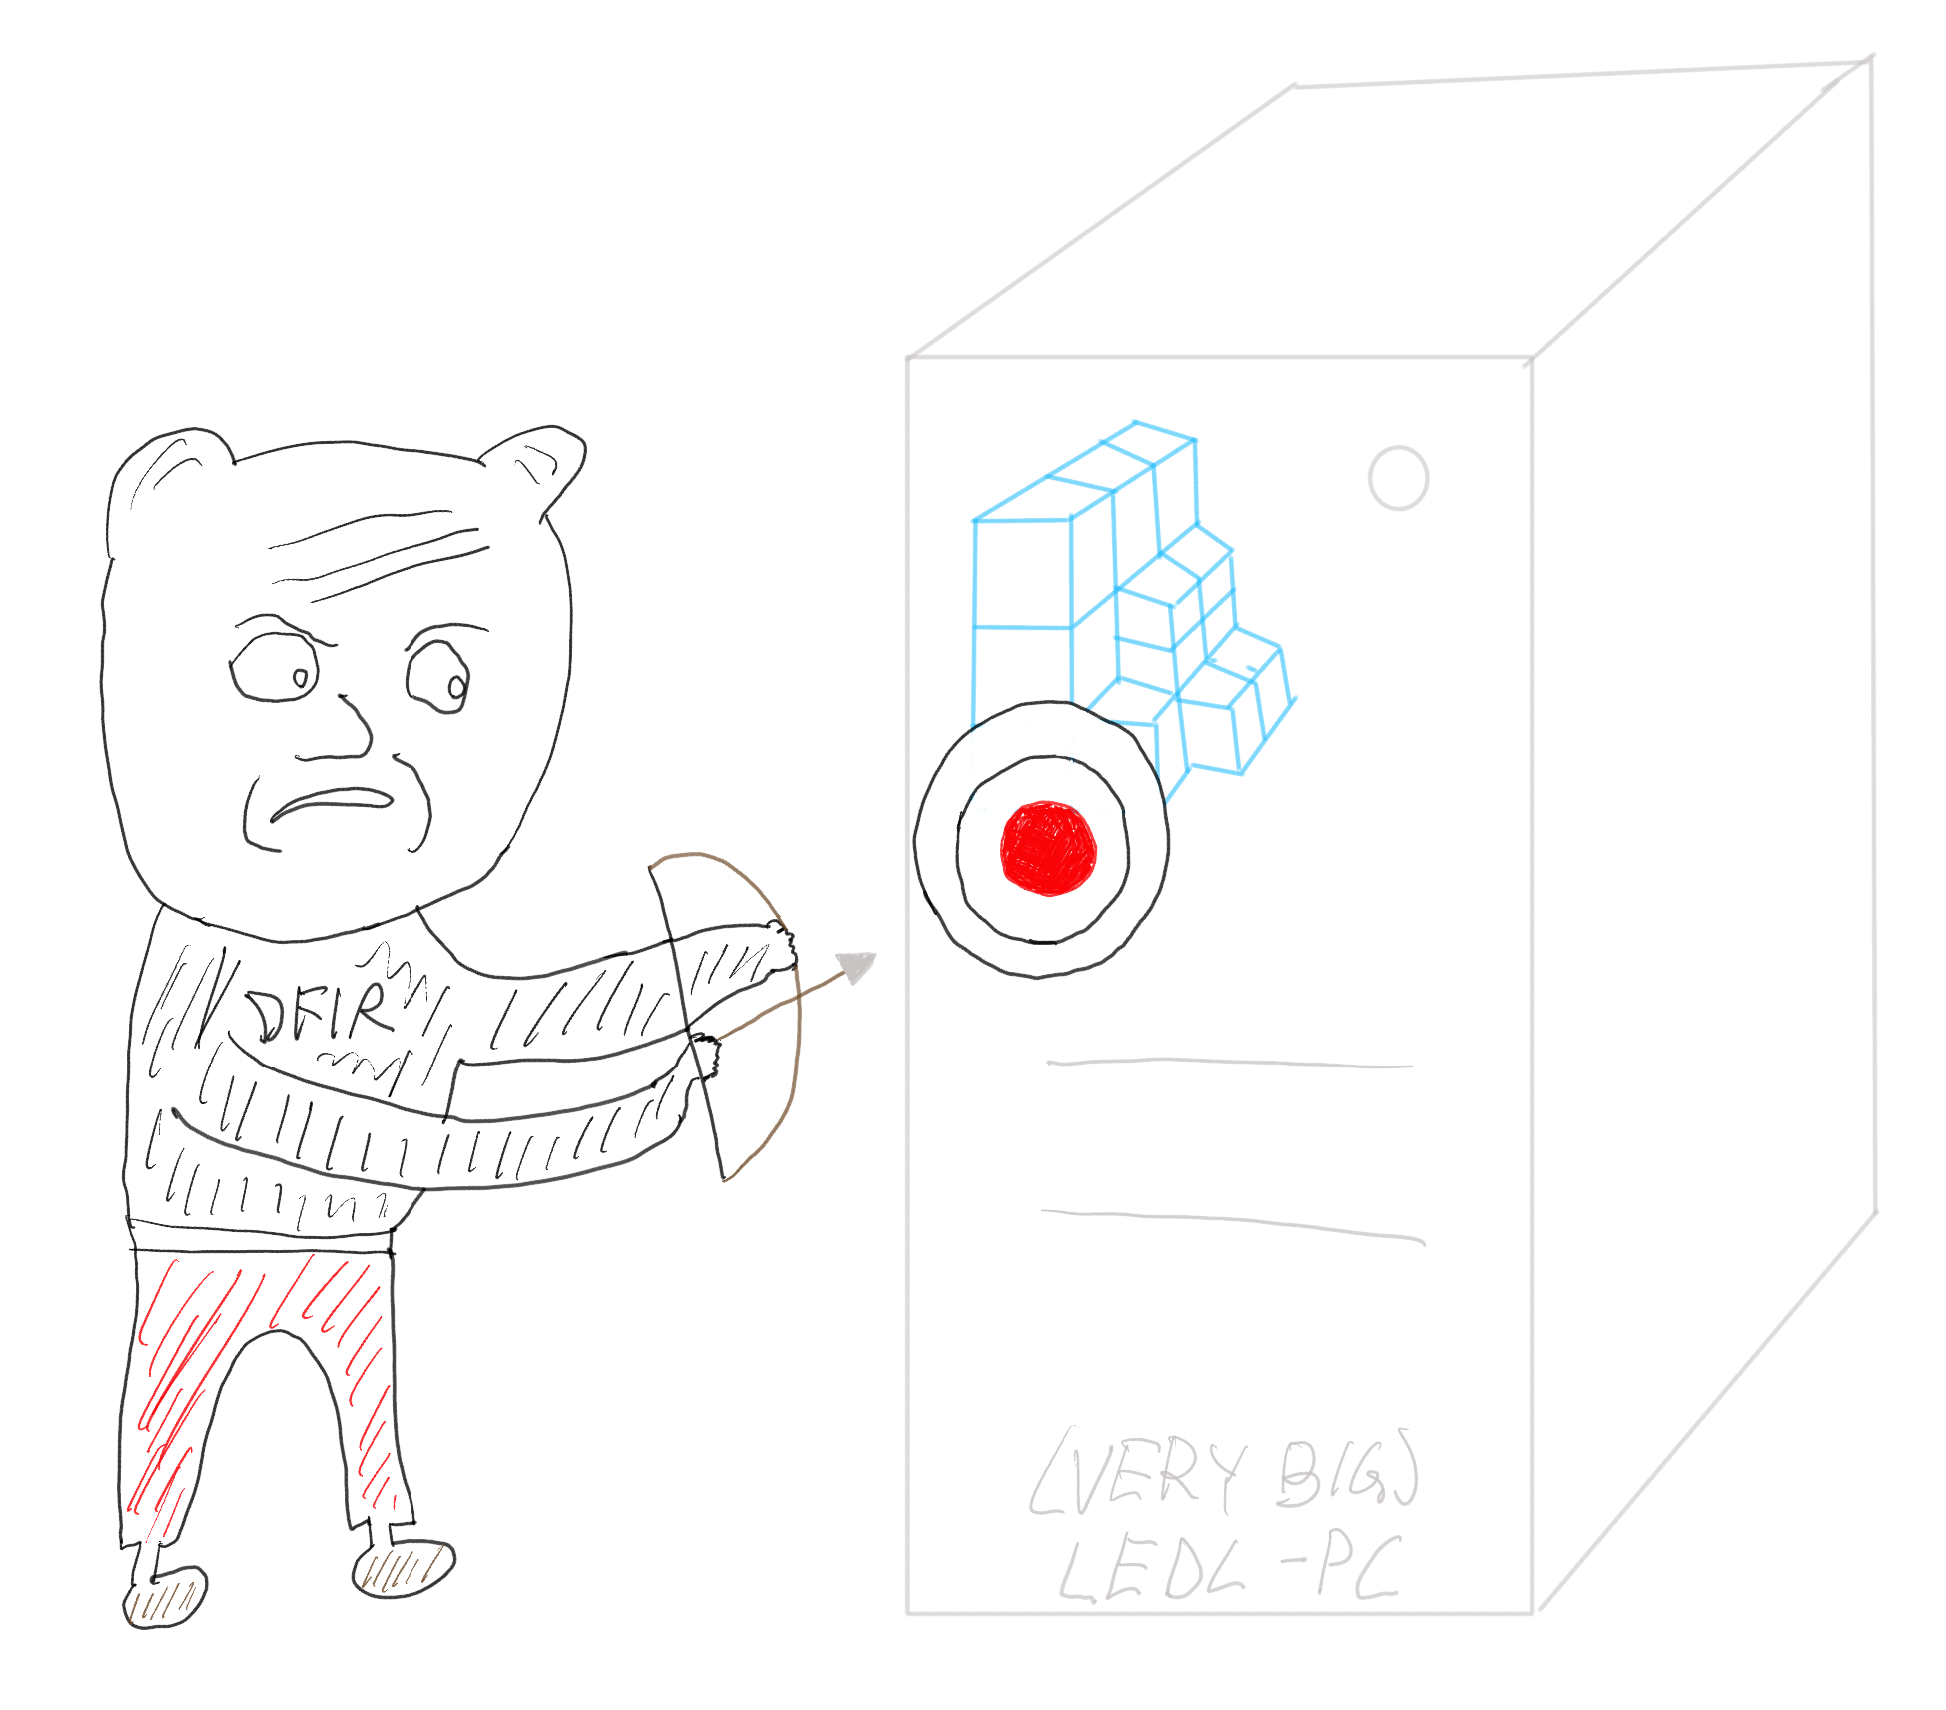 DFIR
(VERY BIG)
LEDL-PC